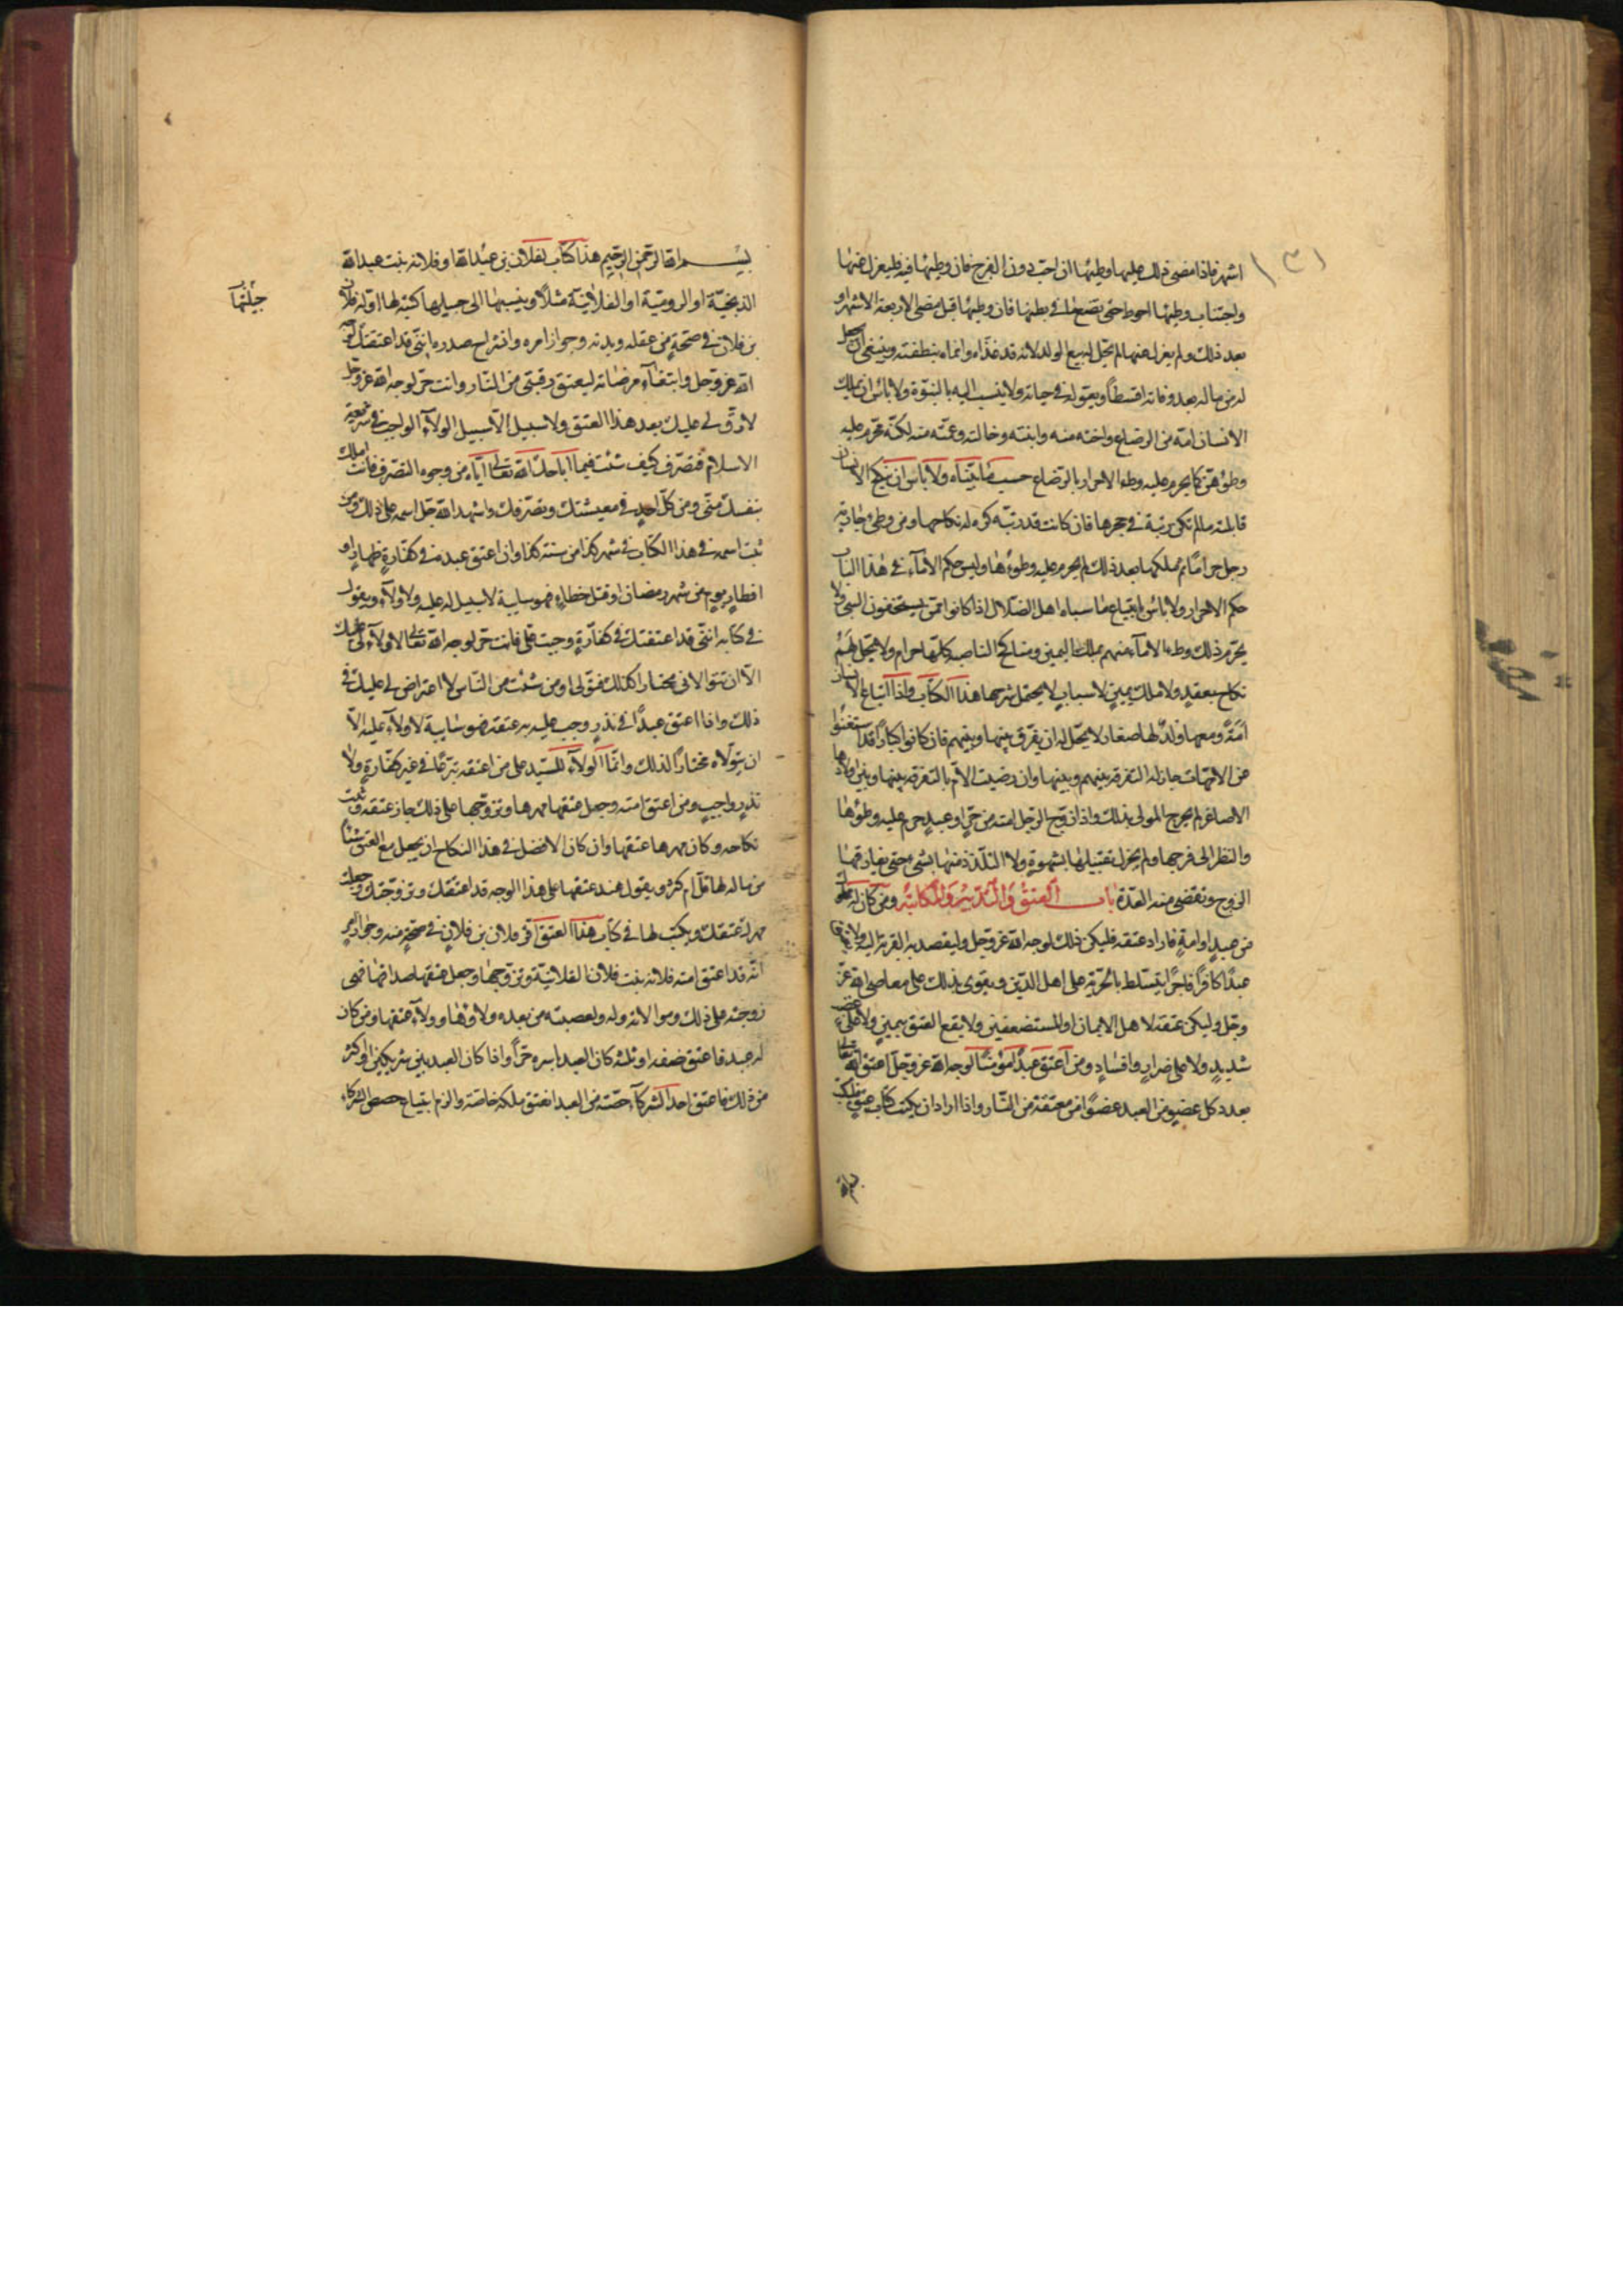 ١٣١
اشهر فاذا مضى ذلك عليها وطئها ان احب دون الفرج فان وطيها فيه فليعزل عنها
واجتناب وطيها احوط حتى تضع ما في بطنها فان وطيها قبل مضى الاربعة الاشهر او
بعد ذلك ولم يعزل عنها لم يحل له بيع الولد لانه قد غذاه وانماه بنطفته وينبغى ان يجعل
له من ماله بعد وفاته قسطا ويعوله في حياته ولا ينسب اليه بالبنوة ولا باس ان يملك
الانسان امه من الرضاع واخته منه وابنته وخالته وعمته منه لكنه يحرم عليه
وطؤهن كما يحرم عليه وطء الاحرار بالرضاع حسب ما بيناه ولا باس ان ينكح الانسان
قابلته ما لم تكن ربته في حجرها فان كانت قد ربته كره له نكاحها ومن وطى جارية
رجل حراما ثم ملكها بعد ذلك لم يحرم عليه وطؤها وليس حكم الاماء في هذا الباب
حكم الاحرار ولا باس بابتياع ما سباه اهل الضلال اذا كانوا ممن يستحقون السبي ولا
يحرم ذلك وطء الاماء منهم بملك اليمين ومناكح الناصبة كلها حرام ولا يحل لهم
نكاح بعقد ولا ملك يمين لاسباب لا يحتمل شرحها هذا الكتاب واذا ابتاع الانسان
امة ومعها ولد لها صغار لا يحل له ان يفرق بينها وبينهم فان كانوا كبارا قد استغنوا
عن الامهات جاز له التفرقة بينهم وبينها وان رضيت الام بالتفرقة بينها وبين اولادها
الاصاغر لم يحرج المولى بذلك واذا زوج الرجل امته من حر او عبد حرم عليه وطؤها
والنظر الى فرجها ولم يجز له تقبيلها بشهوة ولا التلذذ منها بشىء حتى يفارقها
الزوج وتقضى منه العدة باب العتق والتدبير والمكاتبة ومن كان له
من عبد او امة فاراد عتقه فليكن ذلك لوجه الله عز وجل وليقصد به القربة اليه ولا
عبدا كافرا فاجرا يتسلط بالحرية على اهل الدين ويقوى بذلك على معاصى الله عز
وجل وليكن عتقه لاهل الايمان او المستضعفين ولا يقع العتق بيمين ولا على غضب
شديد ولا على ضرار وافساد ومن اعتق عبدا مؤمنا لوجه الله عز وجل اعتق الله
بعدد كل عضو من العبد عضوا من معتقه من النار واذا اراد ان يكتب كتاب عتق
بسم الله الرحمن الرحيم هذا كتاب لفلان بن عبد الله او فلانة بنت عبد الله
الذبخية او الرومية او الفلانية مثلا وينسبها الى جيلها كتبه لها
جيلتها
بن فلان في صحة من عقله وبدنه وجواز امره وانشراح صدره اننى قد اعتقتك لوجه
الله عز وجل وابتغاء مرضاته ليعتق رقبتى من النار وانت حر لوجه الله عز وجل
لا رق لى عليك بعد هذا العتق ولا سبيل الا سبيل الولاء الواجب في شريعة
الاسلام فتصرف كيف شئت فيما اباحك الله تعالى اياه من وجوه التصرف فانت املك
بنفسك منى ومن كل احد في معيشتك وتصرفك واشهد الله جل اسمه على ذلك ومن
ثبت اسمه في هذا الكتاب في شهر كذا من سنة كذا وان اعتق عبده في كفارة ظهار او
افطار يوم من شهر رمضان او قتل خطاء فهو سايبة لا سبيل له عليه ولا ولاء ويقول
في كتابه اننى قد اعتقتك في كفارة وجبت على فانت حر لوجه الله تعالى لا ولاء لى عليك
الا ان تتوالانى مختارا لذلك فتولى او من شئت من الناس لا اعتراض لى عليك في
ذلك واذا اعتق عبدا في نذر وجب عليه به عتقه فهو سايبة لا ولاء عليه الا
ان يتولاه مختارا لذلك وانما الولاء للسيد على من اعتقه تبرعا في غير كفارة ولا
نذر واجب ومن اعتق امته وجعل عتقها مهرها وتزوجها على ذلك جاز عتقه وثبت
نكاحه وكان مهرها عتقها وان كان الافضل في هذا النكاح ان يجعل مع العتق شيئا
من ماله لها قل ام كثر ويقول عند عتقها على هذا الوجه قد اعتقتك وتزوجتك وجعلت
مهرك عتقك ويكتب لها في كتاب هذا العتق اقر فلان بن فلان في صحة منه وجواز امر
انه قد اعتق امته فلانه بنت فلان الفلانية وتزوجها وجعل عتقها صداقها فهى
زوجته على ذلك ومولاته وله ولعصبته من بعده ولاؤها وولاء عتقها ومن كان
له عبد فاعتق نصفه او ثلثه كان العبد باسره حرا واذا كان العبد بين شريكين او اكثر
من ذلك فاعتق احد الشركاء حصته من العبد انعتق ملكه خاصة والزم ابتياع حصص الشركاء